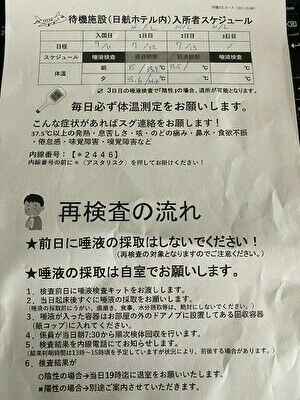 待機施設（日航ホテル内）入所者スケジュール
入国日 1日目 2日目 3日目
日程 7/11 7/12 7/13
スケジュール 唾液検査 経過観察 経過観察 唾液検査
体温 朝 ℃ ℃ ℃
夕 ℃ ℃
☑ 3日目の唾液検査で「陰性」の場合、退所が可能となります。
毎日必ず体温測定をお願いします。
こんな症状があればスグ連絡をお願いします！
37.5℃以上の発熱・息苦しさ・咳・のどの痛み・鼻水・食欲不振
・倦怠感・味覚障害・嗅覚障害など
内線番号：【＊2446】
内線番号の前に＊（アスタリスク）を押してお掛けください！
再検査の流れ
★前日に唾液の採取はしないでください！
（再検査の対象となりますのでご注意ください。）
★唾液の採取は自室でお願いします。
1．検査前日に唾液検査キットをお渡しします。
2．当日起床後すぐに唾液の採取をお願いします。
（唾液の採取前にうがい、歯磨き、食事、水分摂取等は、絶対にしないでください！）
3．唾液が入った容器はお部屋の外のドアノブに設置してある回収容器
（紙コップ）に入れてください。
4．係員が当日7:30から順次検体回収を行います。
5．検査結果を内線電話にてお知らせします。
（結果判明時間は13時～15時頃を予定していますが状況により、前後する場合があります。）
6．検査結果が
○陰性の場合⇒当日19時迄に退室をお願いいたします。
※陽性の場合⇒別途ご案内させていただきます。